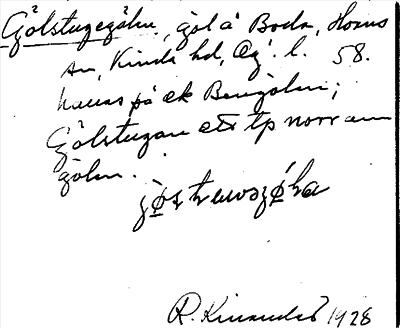 Gölstugegölen, göl å Boda, Horns
sn, Kinda hd, Ög. l. 58.
kallas på ek Bengölen;
Gölstugan ett tp norr om
gölen.
R. Kinander 1928